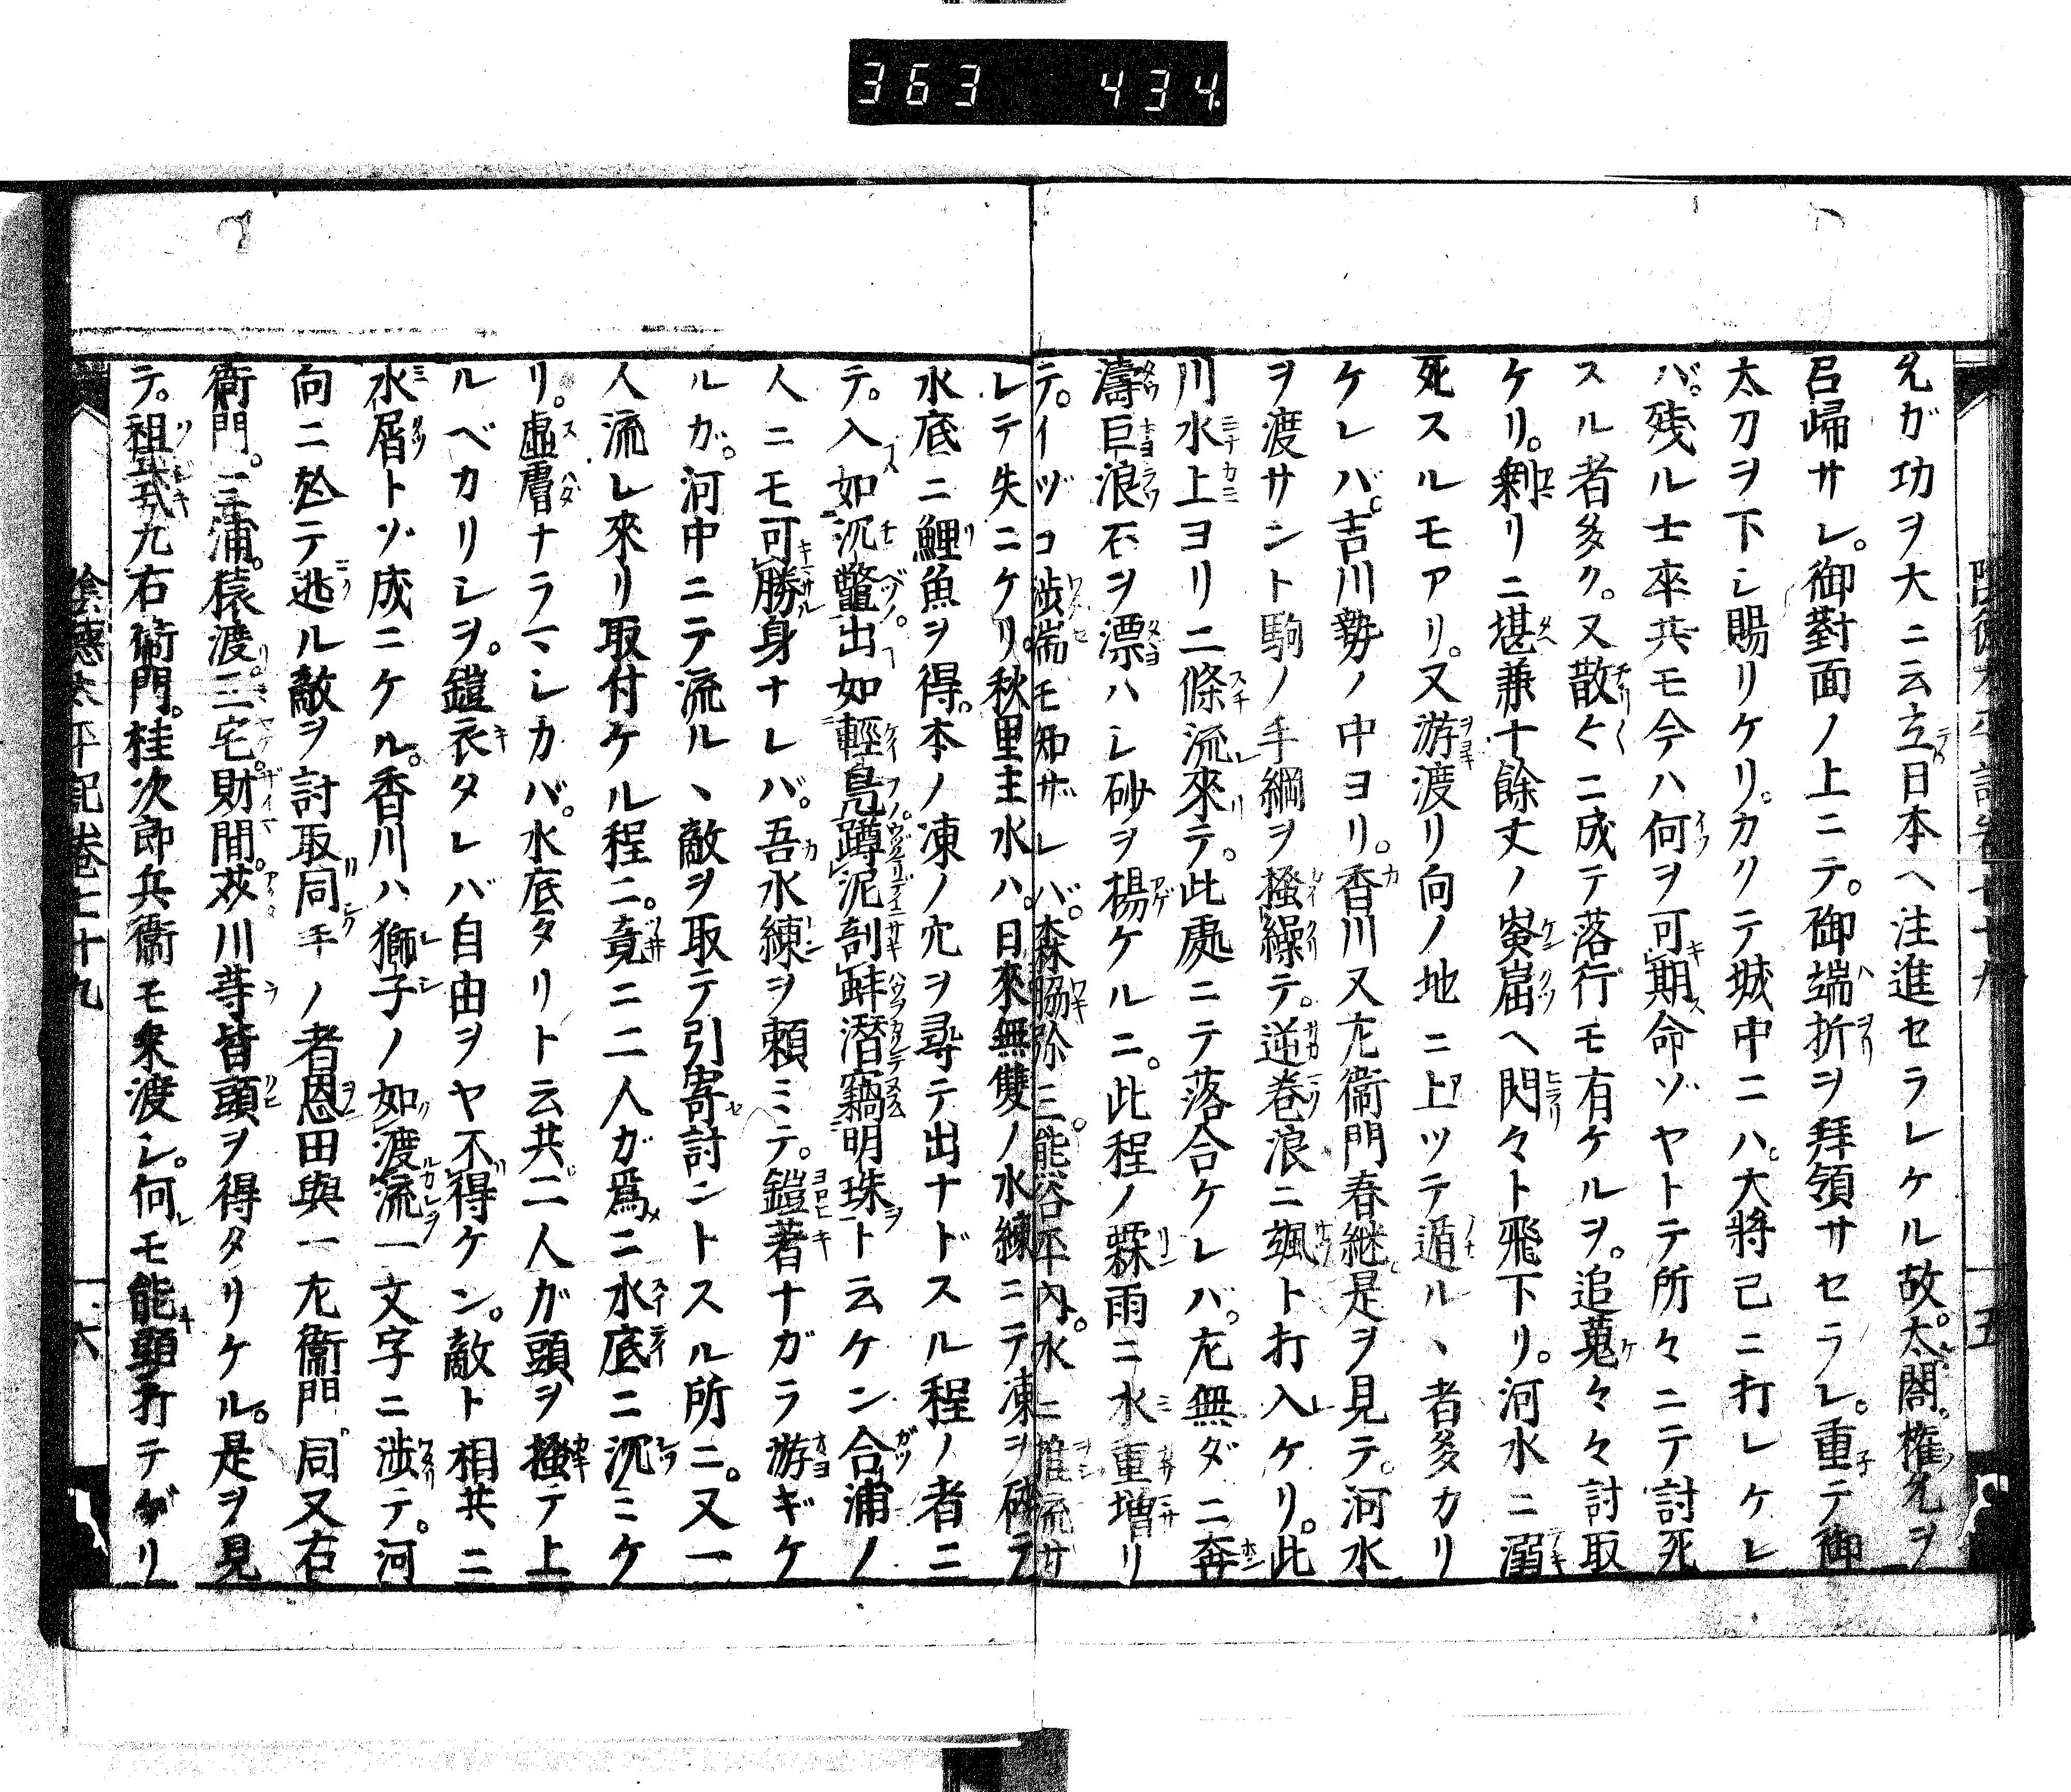 363 434.
陰徳太平記巻七十九 五
允ガ功ヲ大ニ云立日本ヘ注進セラレケル故。太閤。権允ヲ
召帰サレ。御對面ノ上ニテ。御端折ヲ拜領サセラレ。重テ御
太刀ヲ下シ賜リケリ。カクテ城中ニハ。大將己ニ打レケレ
バ。残ル士卒共モ今ハ何ヲ可期命ゾヤトテ所々ニテ討死
スル者多ク。又散々ニ成テ落行モ有ケルヲ。追蒐々々討取
ケリ。剰リニ堪兼十餘丈ノ嵌崫ヘ閃々ト飛下リ。河水ニ溺
死スルモアリ。又游渡リ向ノ地ニ上ツテ遁ルヽ者多カリ
ケレバ。吉川勢ノ中ヨリ。香川又左衞門春継是ヲ見テ。河水
ヲ渡サント駒ノ手綱ヲ掻繰テ。逆巻浪ニ颯ト打入ケリ。此
川水上ヨリ二條流來テ。此處ニテ落合ケレバ。左無ダニ奔
濤巨浪石ヲ漂ハシ砂ヲ揚ケルニ。此程ノ霖雨ニ水重増リ
テ。イヅコ渉湍モ知ザレバ。森脇弥三。能谷平内。水ニ推流サ
レテ失ニケリ。秋里主水ハ。日來無雙ノ水練ニテ凍ヲ砕テ
水底ニ鯉魚ヲ得。本ノ凍ノ穴ヲ尋テ出ナドスル程ノ者ニ
テ。入如沉鼈出如輕鳧蹲泥剖蚌潜竊明珠ト云ケン合浦ノ
人ニモ可勝身ナレバ。吾水練ヲ頼ミテ。鎧著ナガラ游ギケ
ルガ。河中ニテ流ルヽ敵ヲ取テ引寄討ントスル所ニ。又一
人流レ來リ取付ケル程ニ。竟ニ二人ガ爲ニ水底ニ沉ミケ
リ。虚膚ナラマシカバ。水底タリト云共二人ガ頭ヲ掻テ上
ルベカリシヲ。鎧衣タレバ自由ヲヤ不得ケン。敵ト相共ニ
水屑トゾ成ニケル。香川ハ獅子ノ如渡流一文字ニ渉テ。河
向ニテ逃ル敵ヲ討取同手ノ者恩田與一左衞門。同又右
衞門。三浦。猿渡。三宅。財間。苅川等皆頭ヲ得タリケル。是ヲ見
テ。祖式九右衞門。桂次郎兵衞モ乗渡シ。何モ能頸打テゲリ
陰徳太平記巻七十九 六